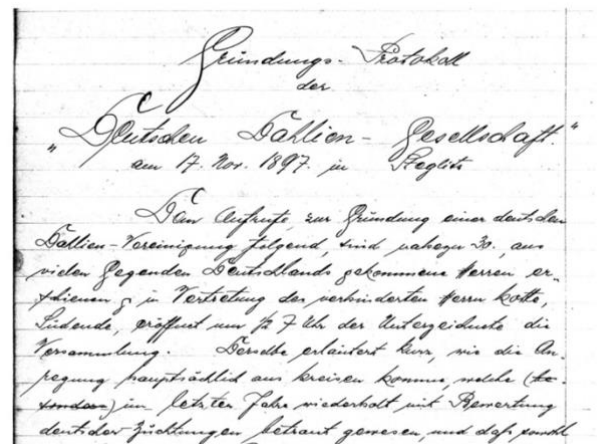 Gründungs-Protokoll
der
"Deutschen Dahlien-Gesellschaft."
am 17. Nov. 1897 in Steglitz
Dem Aufrufe, zur Gründung einer deutschen
Dahlien-Vereinigung folgend, sind nahezu 30, aus
vielen Gegenden Deutschlands gekommene Herren er-
schienen in Vertretung des verhinderten Herrn Kotte,
Südende, eröffnet um ½ 7 Uhr der Unterzeichnete die
Versammlung. Derselbe erläutert kurz, wie die An-
regung hauptsächlich aus Kreisen komme, welche
im letzten Jahre wiederholt mit Bewertung
deutscher Züchtungen betraut gewesen und daß sowohl